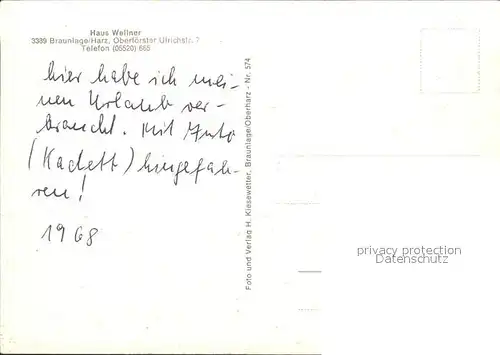 Haus Wellner
3389 Braunlage/Harz, Oberförster Ulrichstr. 7
Telefon (05520) 665
hier habe ich mei-
nen Urlaub ver-
braucht. Mit Auto
(Kadett) hingefah-
ren!
1968
Foto und Verlag H. Kiesewetter, Braunlage/Oberharz - Nr. 574
privacy protection
Datenschutz